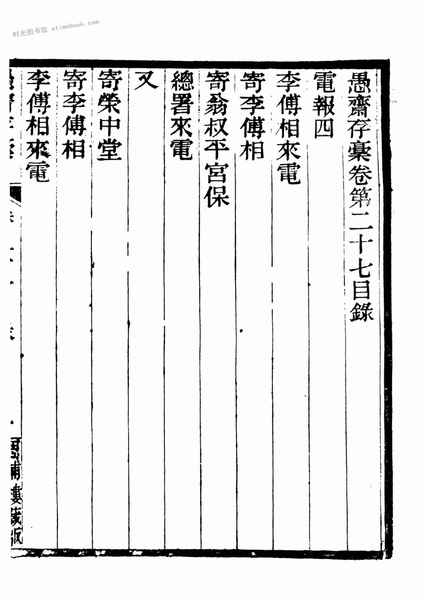 时光图书馆 etimebook.com
愚齋存稾卷第二十七目錄
電報四
李傅相來電
寄李傅相
寄翁叔平宮保
總署來電
又
寄榮中堂
寄李傅相
李傅相來電
愚齋存稾
思補樓藏版